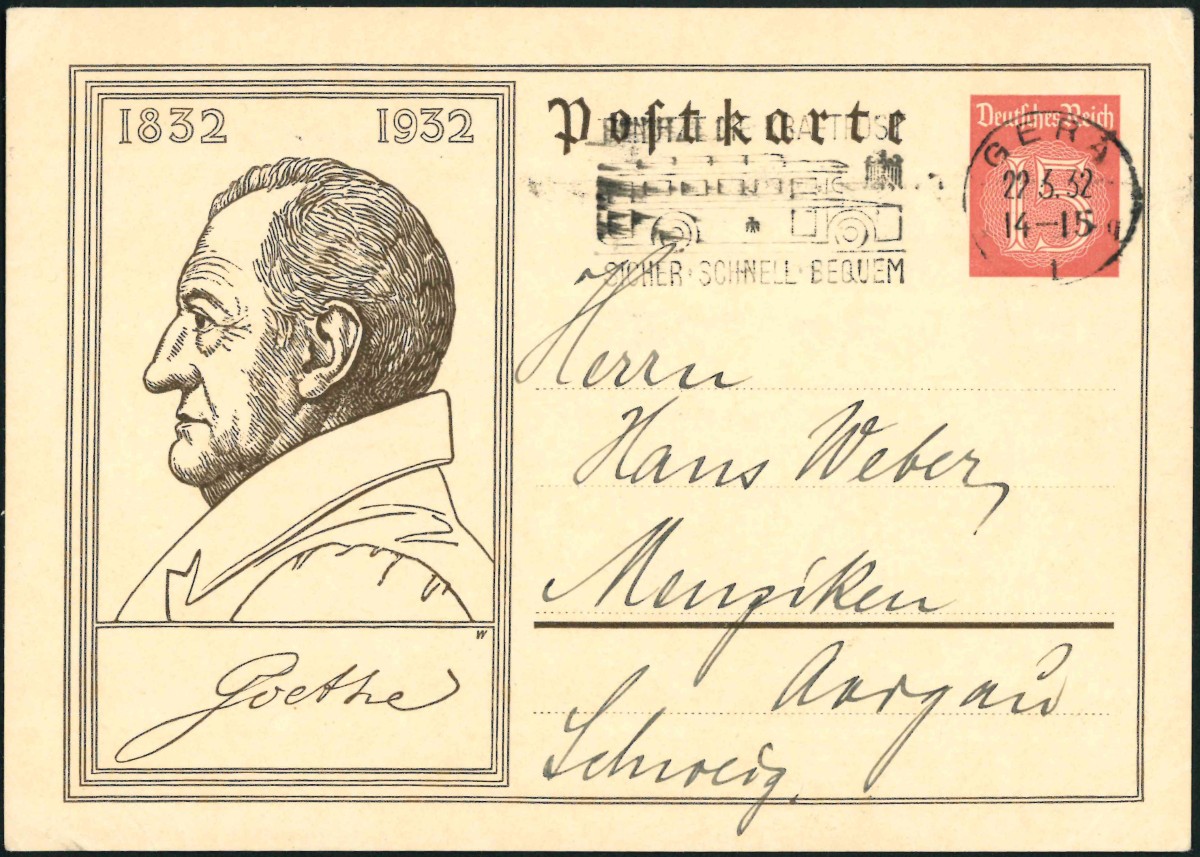 1832 1932
W
Goethe
Postkarte
Deutsches Reich
15
GERA
22.3.32
14–15
1
SICHER · SCHNELL · BEQUEM
Herrn
Hans Weber,
Menziken
Aargau
Schweiz.